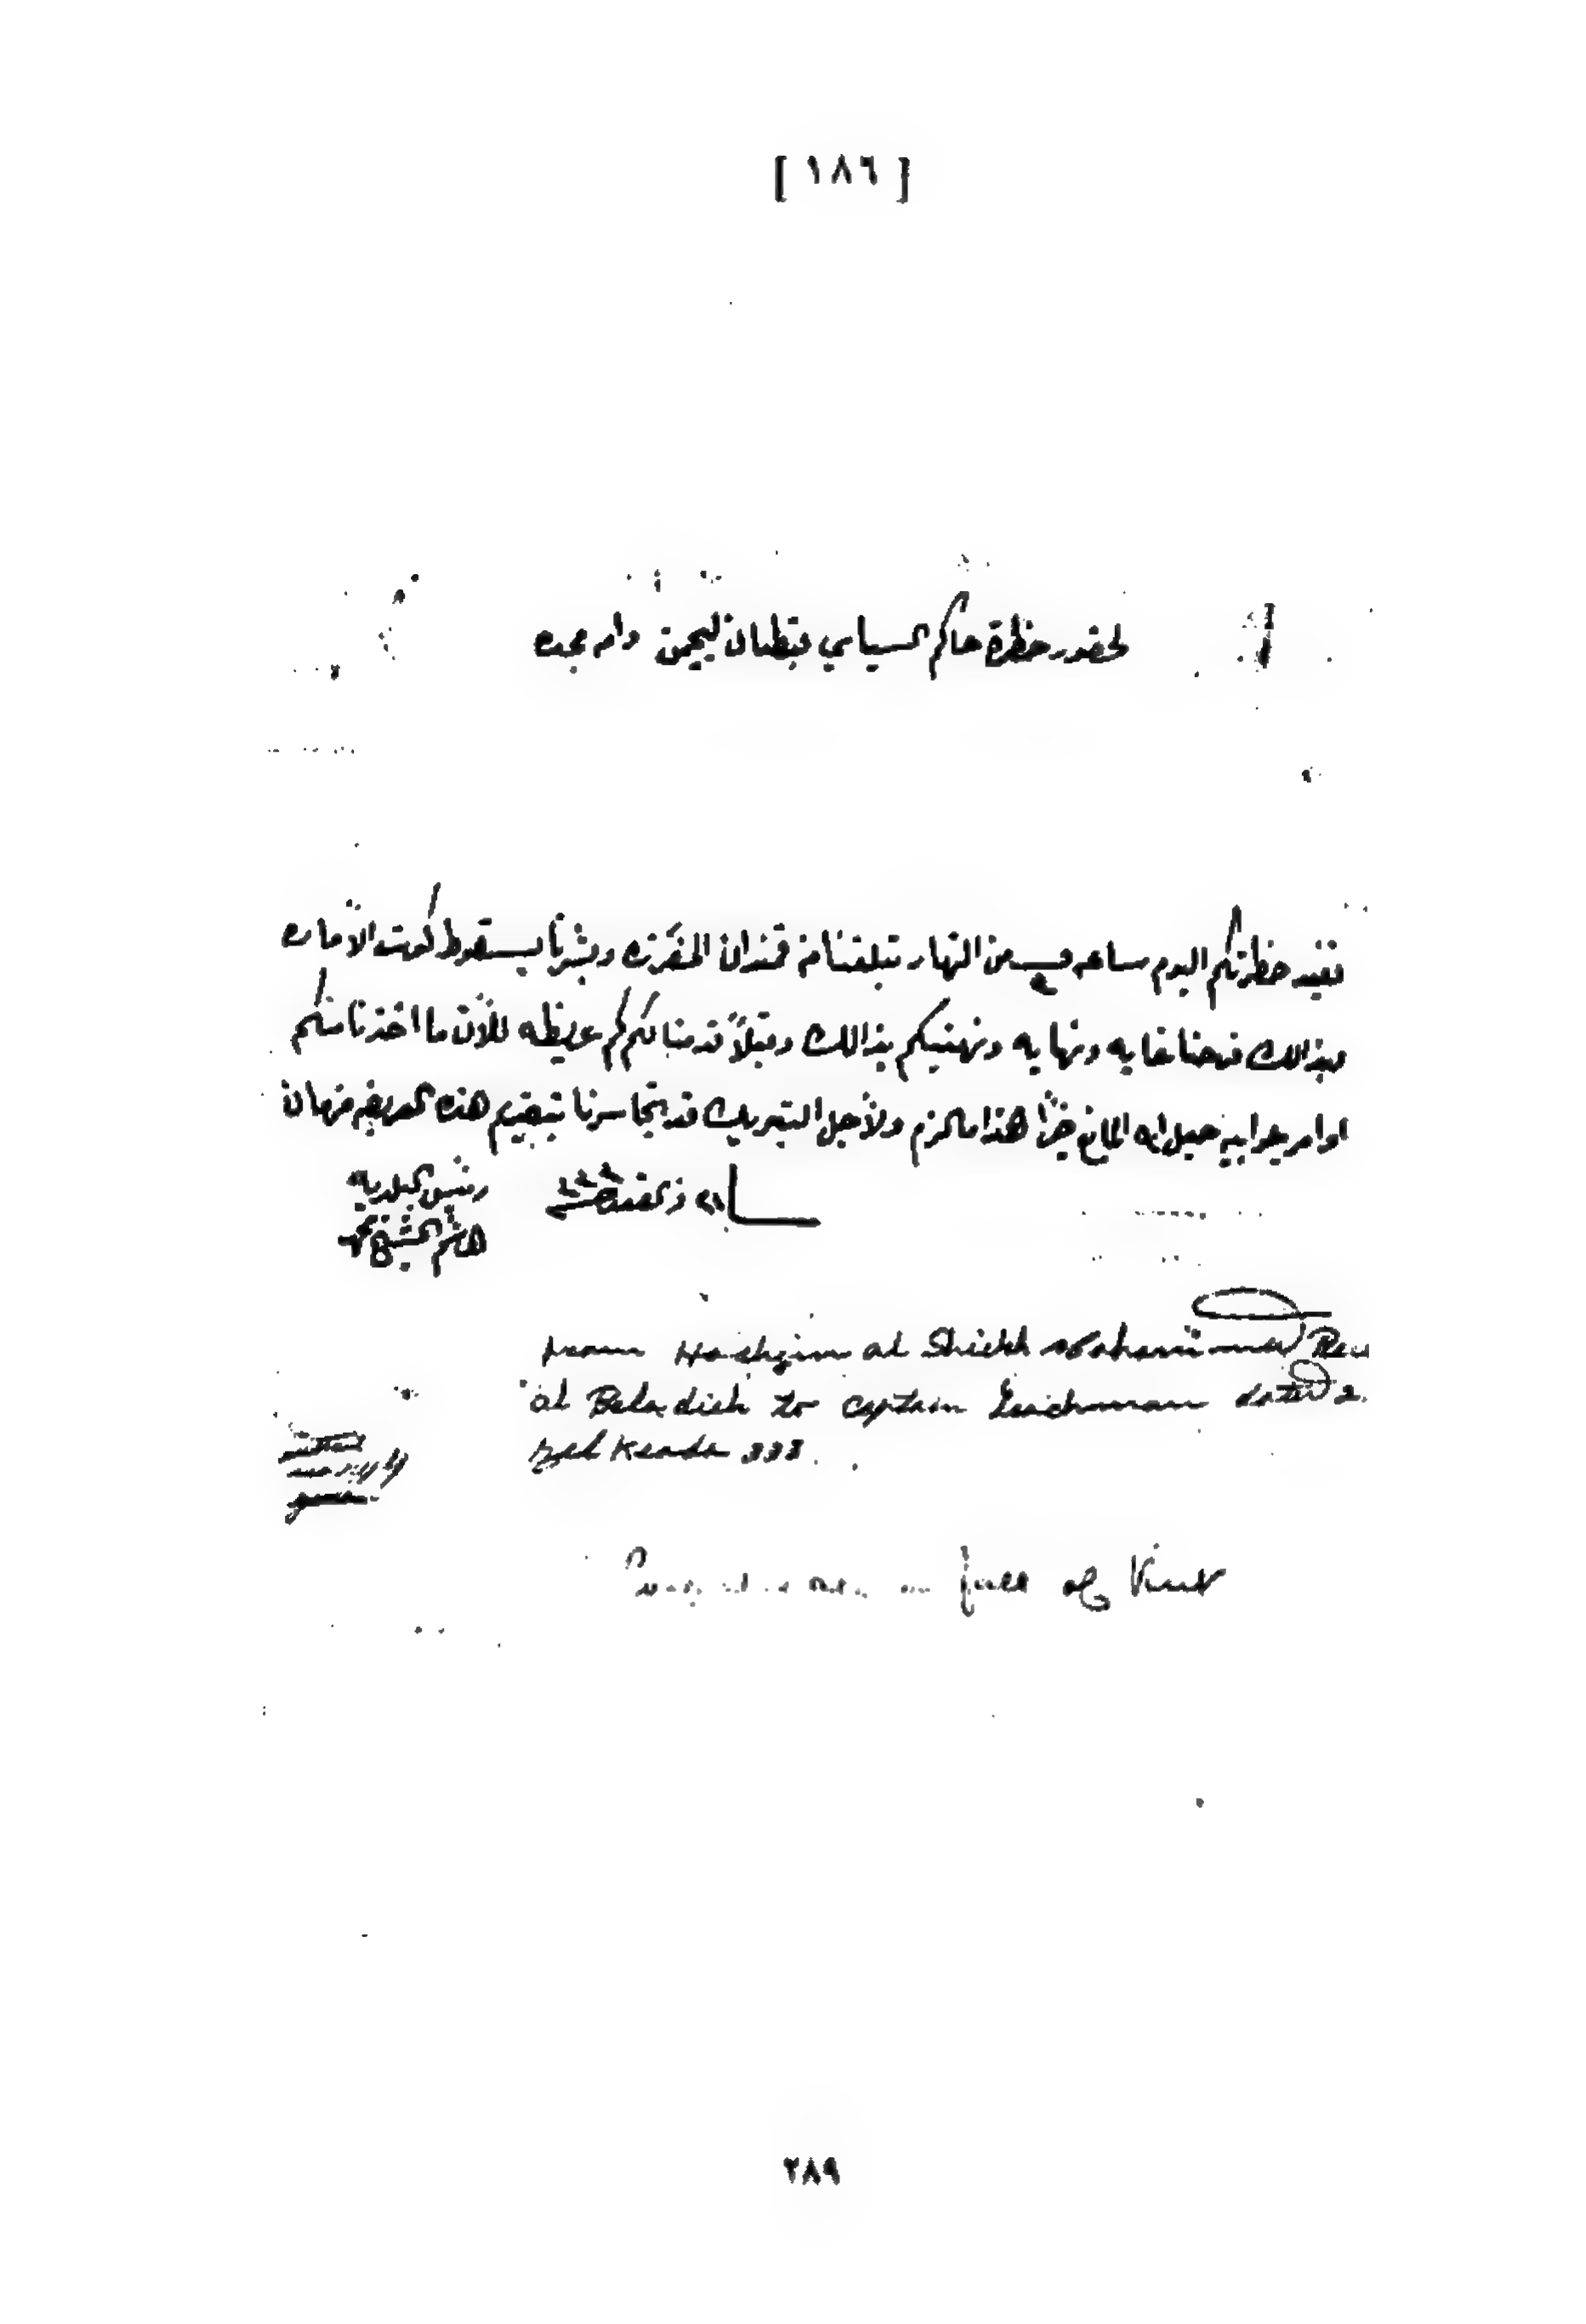 [ ١٨٦ ]
لحضور حظرة حاكم السياسي قبطان ليجمن دام مجده
نفيد حظرتكم اليوم ساعه من النهار تبلغنا من قمندان وبشرنا بسقوط كوت الاماره
وبذالك فرحنا غايه ونهايه ونهنيكم بذالك وقبلاً قدمنا لكم عليظه للآن ما اخذنا منكم
اوامر جوابيه جعل الله المانع خيراً هذا مالزم ولأجل التبريك قد تجاسرنا بتقديم هذه العريضه
رئيس البلديه
هاشم الشيخ محمد
From Hashim al Shiekh Mahammad Rais
al Beladieh to Captain Leichman dated 2
zel Keade 333.
on fall of Kut
٢٨٩